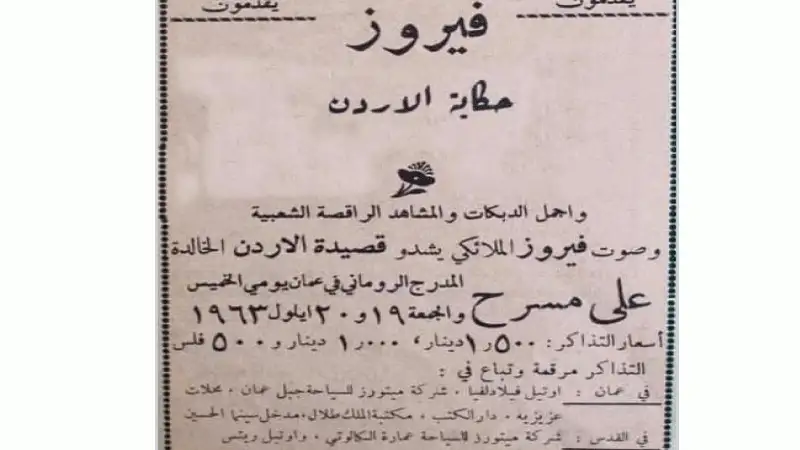 يقدمون يقدمون
فيروز
حكاية الاردن
واجمل الدبكات والمشاهد الراقصة الشعبية
وصوت فيروز الملائكي يشدو قصيدة الاردن الخالدة
على مسرح المدرج الروماني في عمان يومي الخميس
والجمعة ١٩ و ٢٠ ايلول ١٩٦٣
أسعار التذاكر : ١٫٥٠٠ دينار، ١٫٠٠٠ دينار و ٥٠٠ فلس
التذاكر مرقمة وتباع في :
في عمان : اوتيل فيلادلفيا . شركة ميتورز للسياحة جبل عمان . محلات
عزيزيه . دار الكتب . مكتبة الملك طلال . مدخل سينما الحسين
في القدس : شركة ميتورز للسياحة عمارة الكالوتي . واوتيل ريتس